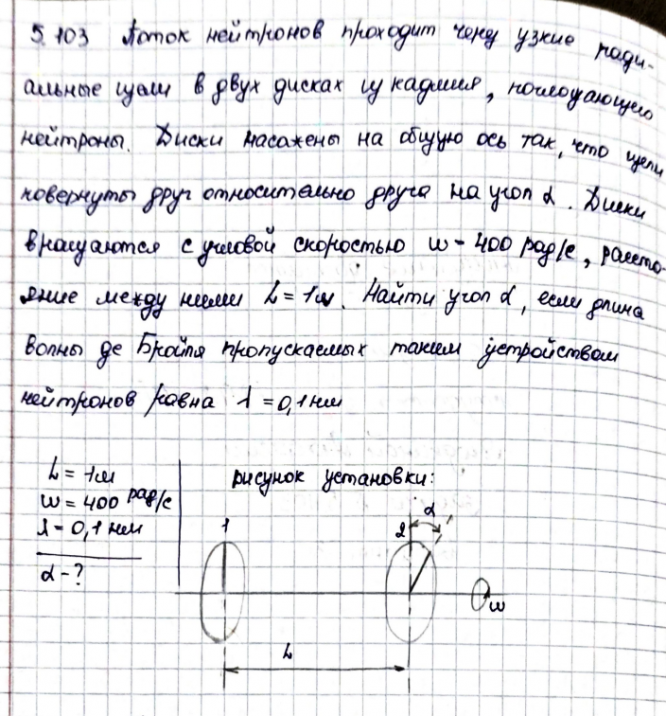 5.103 Поток нейтронов проходит через узкие ради-
альные щели в двух дисках из кадмия, поглощающего
нейтроны. Диски насажены на общую ось так, что щели
повернуты друг относительно друга на угол α. Диски
вращаются с угловой скоростью ω = 400 рад/с, рассто-
яние между ними L = 1м. Найти угол α, если длина
волны де Бройля пропускаемых таким устройством
нейтронов равна λ = 0,1 нм
L = 1м
ω = 400 рад/с
λ = 0,1 нм
α - ?
рисунок установки:
1
2
α
ω
L